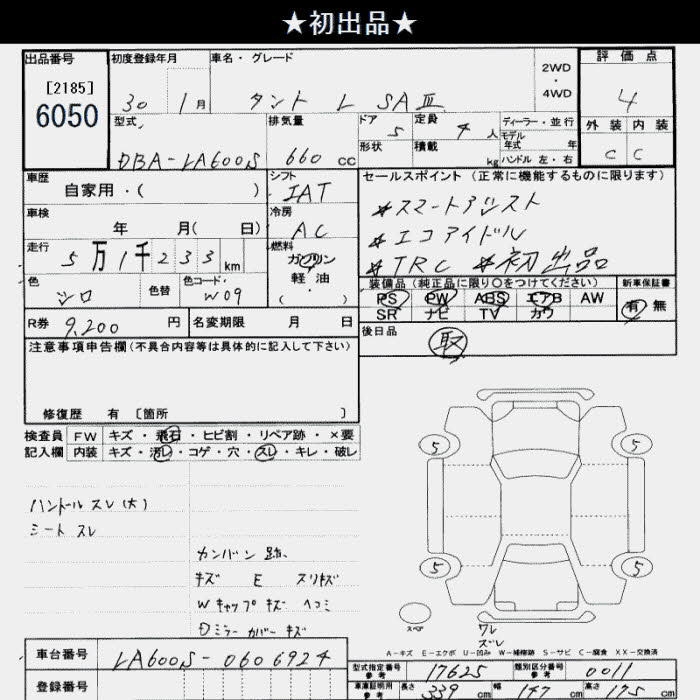 ★初出品★
出品番号 初度登録年月 車名・グレード 2WD・4WD 評価点
[2185]
6050
30 1月 タント L SAⅢ 4
型式 排気量 ドア 5 定員 4人 ディーラー・並行 外装 内装
モデル年式 年
DBA-LA600S 660 CC 形状 積載 kg ハンドル 左・右 C C
車歴 シフト セールスポイント(正常に機能するものに限ります)
自家用・( ) IAT *スマートアシスト
車検 冷房
年 月( 日) AC *エコアイドル
走行 燃料 *TRC *初出品
5万1千233km ガソリン
軽・油
( )
色 色替 色コード
シロ W09
装備品(純正品に限り○をつけてください) 新車保証書
PS PW ABS エアB AW 有 無
SR ナビ TV カワ
R券 9,200 円 名変期限 月 日 後日品
取
注意事項申告欄(不具合内容等は具体的に記入して下さい)
修復歴 有 〔箇所 〕
検査員 FW キズ・飛石・ヒビ割・リペア跡・×要
記入欄 内装 キズ・汚レ・コゲ・穴・スレ・キレ・破レ
5 5
ハンドル スレ(大)
シート スレ
カンバン 跡
キズ E スリキズ
5 5
Wキャップ キズ ヘコミ
Dミラー カバー キズ
スペア ワレ
ズレ
A-キズ E-エクボ U-凹み W-補修跡 S-サビ C-腐食 XX-交換済
車台番号 LA600S-0606924
型式指定番号 参考 17625 類別区分番号 参考 0011
登録番号
車庫証明用 参考 長さ 339 cm 幅 147 cm 高さ 175 cm